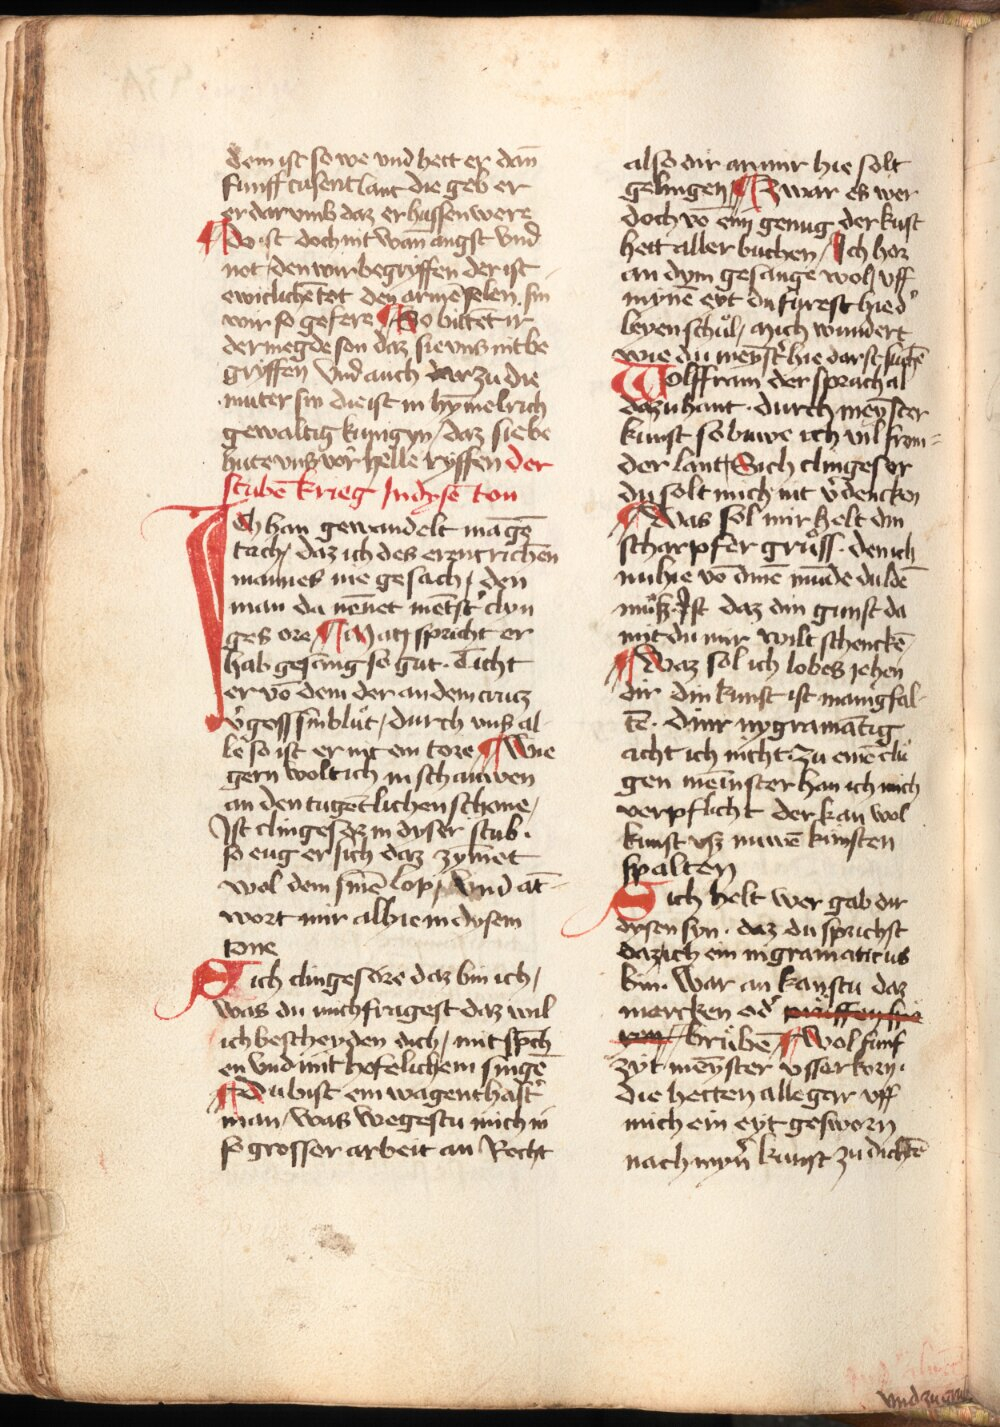 dem ist so we vnd hett er dañ
funff tusent lant die geb er
er dar vmb daz er hussen were
do ist doch nit wañ angst vnd
not / den wir begryffen der ist
ewiclichē tot den armē selen sin
wir so gefere So bittēt ir
der megde son daz sie vns nit be
gryffen Vnd auch dar zu die
muter sin die ist in hȳmelrich
gewaltig kungyn / daz sie be
hute vns vor helle ryffen der
stubē krieg In dysē ton
Ich han gewandelt magē
tach / daz ich des erentrichen
mannes nie gesach / den
man da nēnet mēistʼ clyn
ges ore Man spricht er
hab gesang so gut. Ticht
er vō dem der an dem cruz
vʼgoss sin blůt / durch vns al
le so ist er nit ein tore Wie
gern wolt ich in schauwen
an den tugētlichen scheine /
Ist clingesor in dyser stub.
so eug er sich daz zȳmet
wol dem sinē lop / Vnd āt
wort mir alhie in dysem
tone
Sich clingesore daz bin ich /
was du mich fragest daz wil
ich bescheyden dich / mit spch
en vnd mit hofelichem singē
Du bist ein wagenthaftʼ
man / was wegestu mich in
so grosser arbeit an Recht
also dir an mir hie solt
gelingen / Zwar es wer
doch vō eim genug der kūst
hett aller buchen / Ich hor
an dym gesange wol / vff
mynē eyt du furest hie dʼ
leyen schůl / Mich wundert
wie du meystʼ hie darst suchē
Wolffram der sprach al
da zu hant. durch meyster
kunst so buwe ich vil frem=
der lant / Sich clingesor
du solt mich nit vʼdencken
Was sol mir helt din
scharpfer grůss. den ich
nu hie vō dinē mūde duldē
můß. Ist daz din gunst da
mit du mir wilt schenckē
Waz sol ich lobes jehen
dir din kunst ist manigfal
tē. diner nygramātig
acht ich nicht. zu einē clu
gen meinster han ich mich
verpflicht der kan wol
kunst vß nuwē kunsten
spalten
Sich helt wer gab dir
dysen syn. daz du sprichst
daz ich ein nigramaticus
bin. War an kanstu daz
mercken odʼ
grůbē / Wol funf
zyt meyster vsserkorn.
die hetten alle gar vff
mich ein eyt gesworn
nach mynʼ kunst zu dichtē
vnd zu